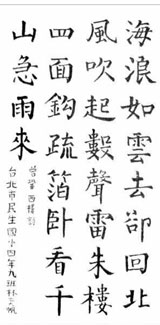 海浪如雲去卻回北
風吹起數聲雷朱樓
四面鈎疏箔卧看千
山急雨來
曾鞏 西樓
台北市民生國小四年九班林